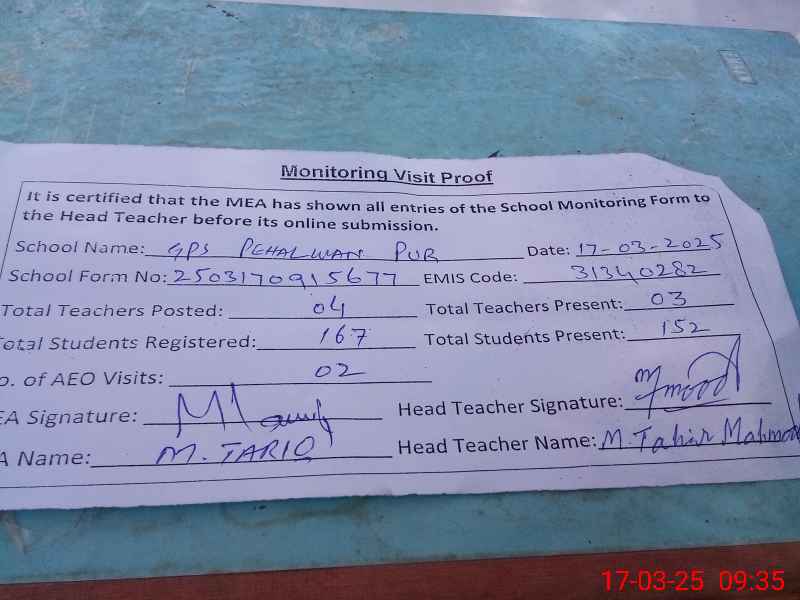 Monitoring Visit Proof
It is certified that the MEA has shown all entries of the School Monitoring Form to
the Head Teacher before its online submission.
School Name: GPS PEHALWAN PUR Date: 17-03-2025
School Form No: 2503170915677 EMIS Code: 31340282
Total Teachers Posted: 04 Total Teachers Present: 03
otal Students Registered: 167 Total Students Present: 152
o. of AEO Visits: 02
EA Signature: Head Teacher Signature:
A Name: M. TARIQ Head Teacher Name: M. Tahir Mahmood
17-03-25 09:35